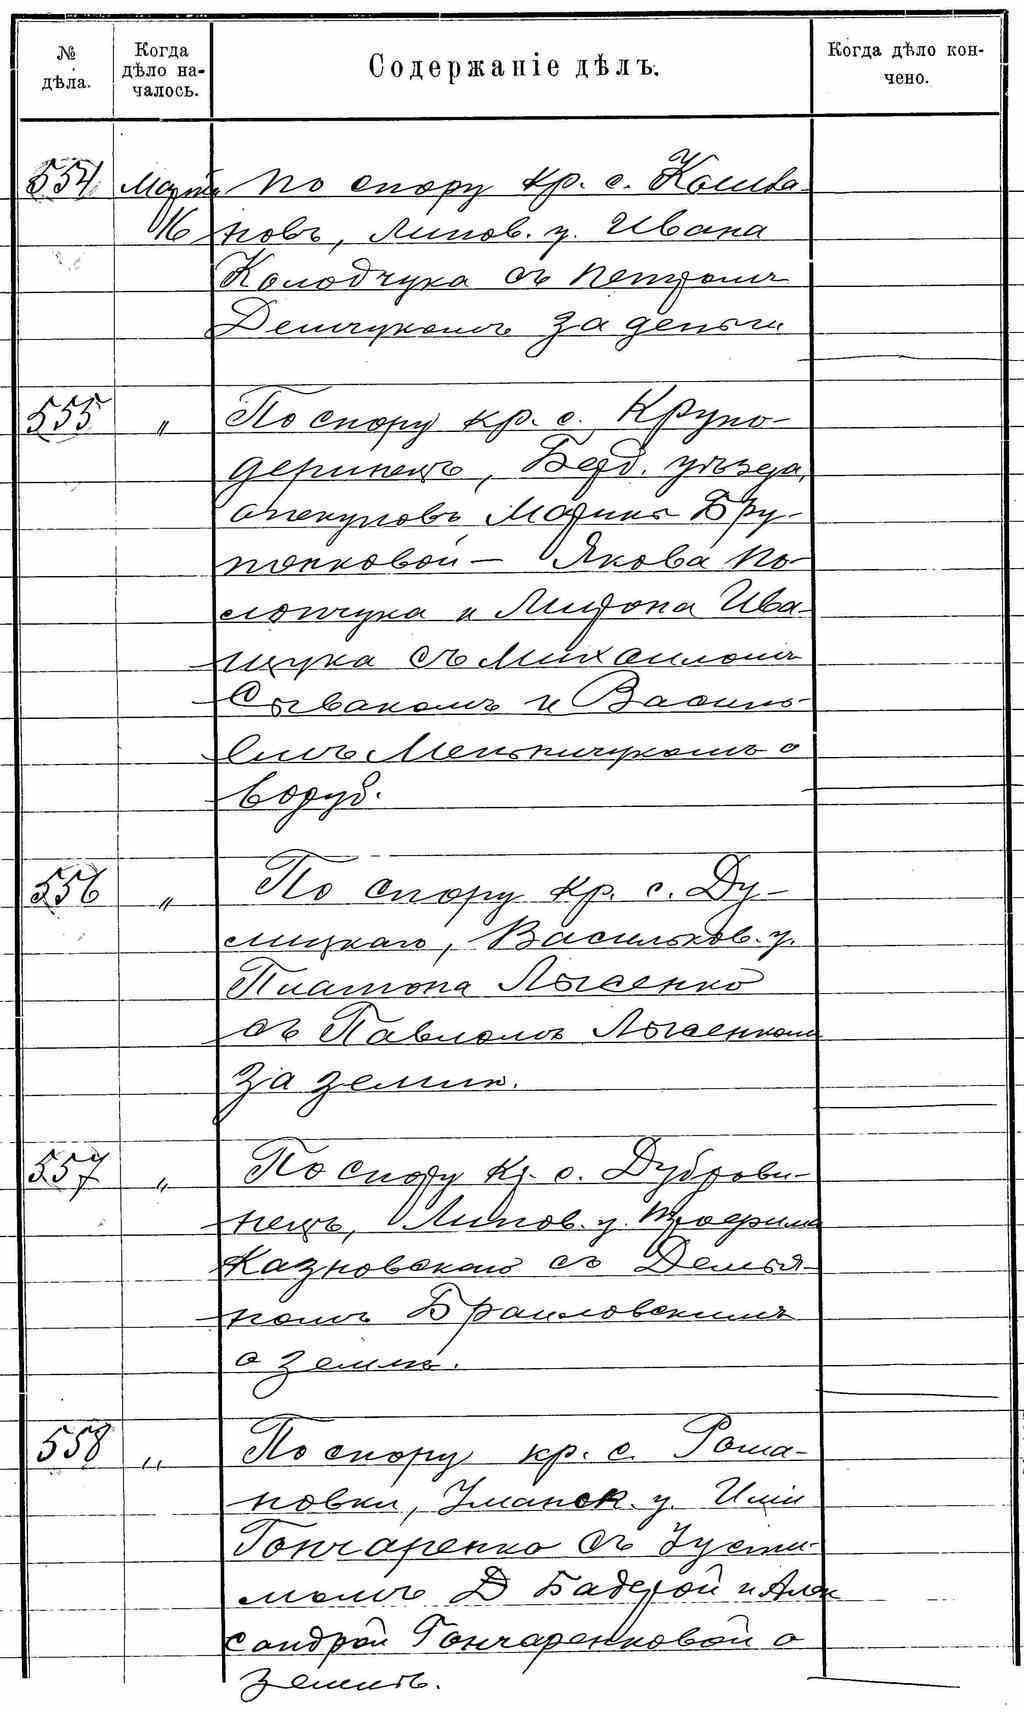 № дѣла.
Когда дѣло началось.
Содержаніе дѣлъ.
Когда дѣло кончено.
554 Марта По спору кр. с. Кошла-
16 новъ, Липов. у. Ивана
Колодчука съ Петромъ
Демчукомъ за деньги
555 " По спору кр. с. Крупо-
деринецъ, Берд. уѣзда,
опекуновъ Марины Бру-
ненковой — Якова По-
лопчука и Мирона Ива-
щука съ Михаиломъ
Сываномъ и Василь-
емъ Мельничукомъ о
воруб.
556 " По спору кр. с. Ду-
лицкаго, Васильков. у.
Платона Лысенко
съ Павломъ Лысенкомъ
за землю.
557 " По спору кр. с. Дуброви-
нецъ, Липов. у. Трофима
Казновскаго съ Демья-
номъ Браиловскимъ
о землѣ.
558 " По спору кр. с. Рома-
новки, Уманск. у. Иліи
Гончаренко съ Усти-
момъ Д Бадерой и Алек
сандрой Гончаренковой о
землѣ.